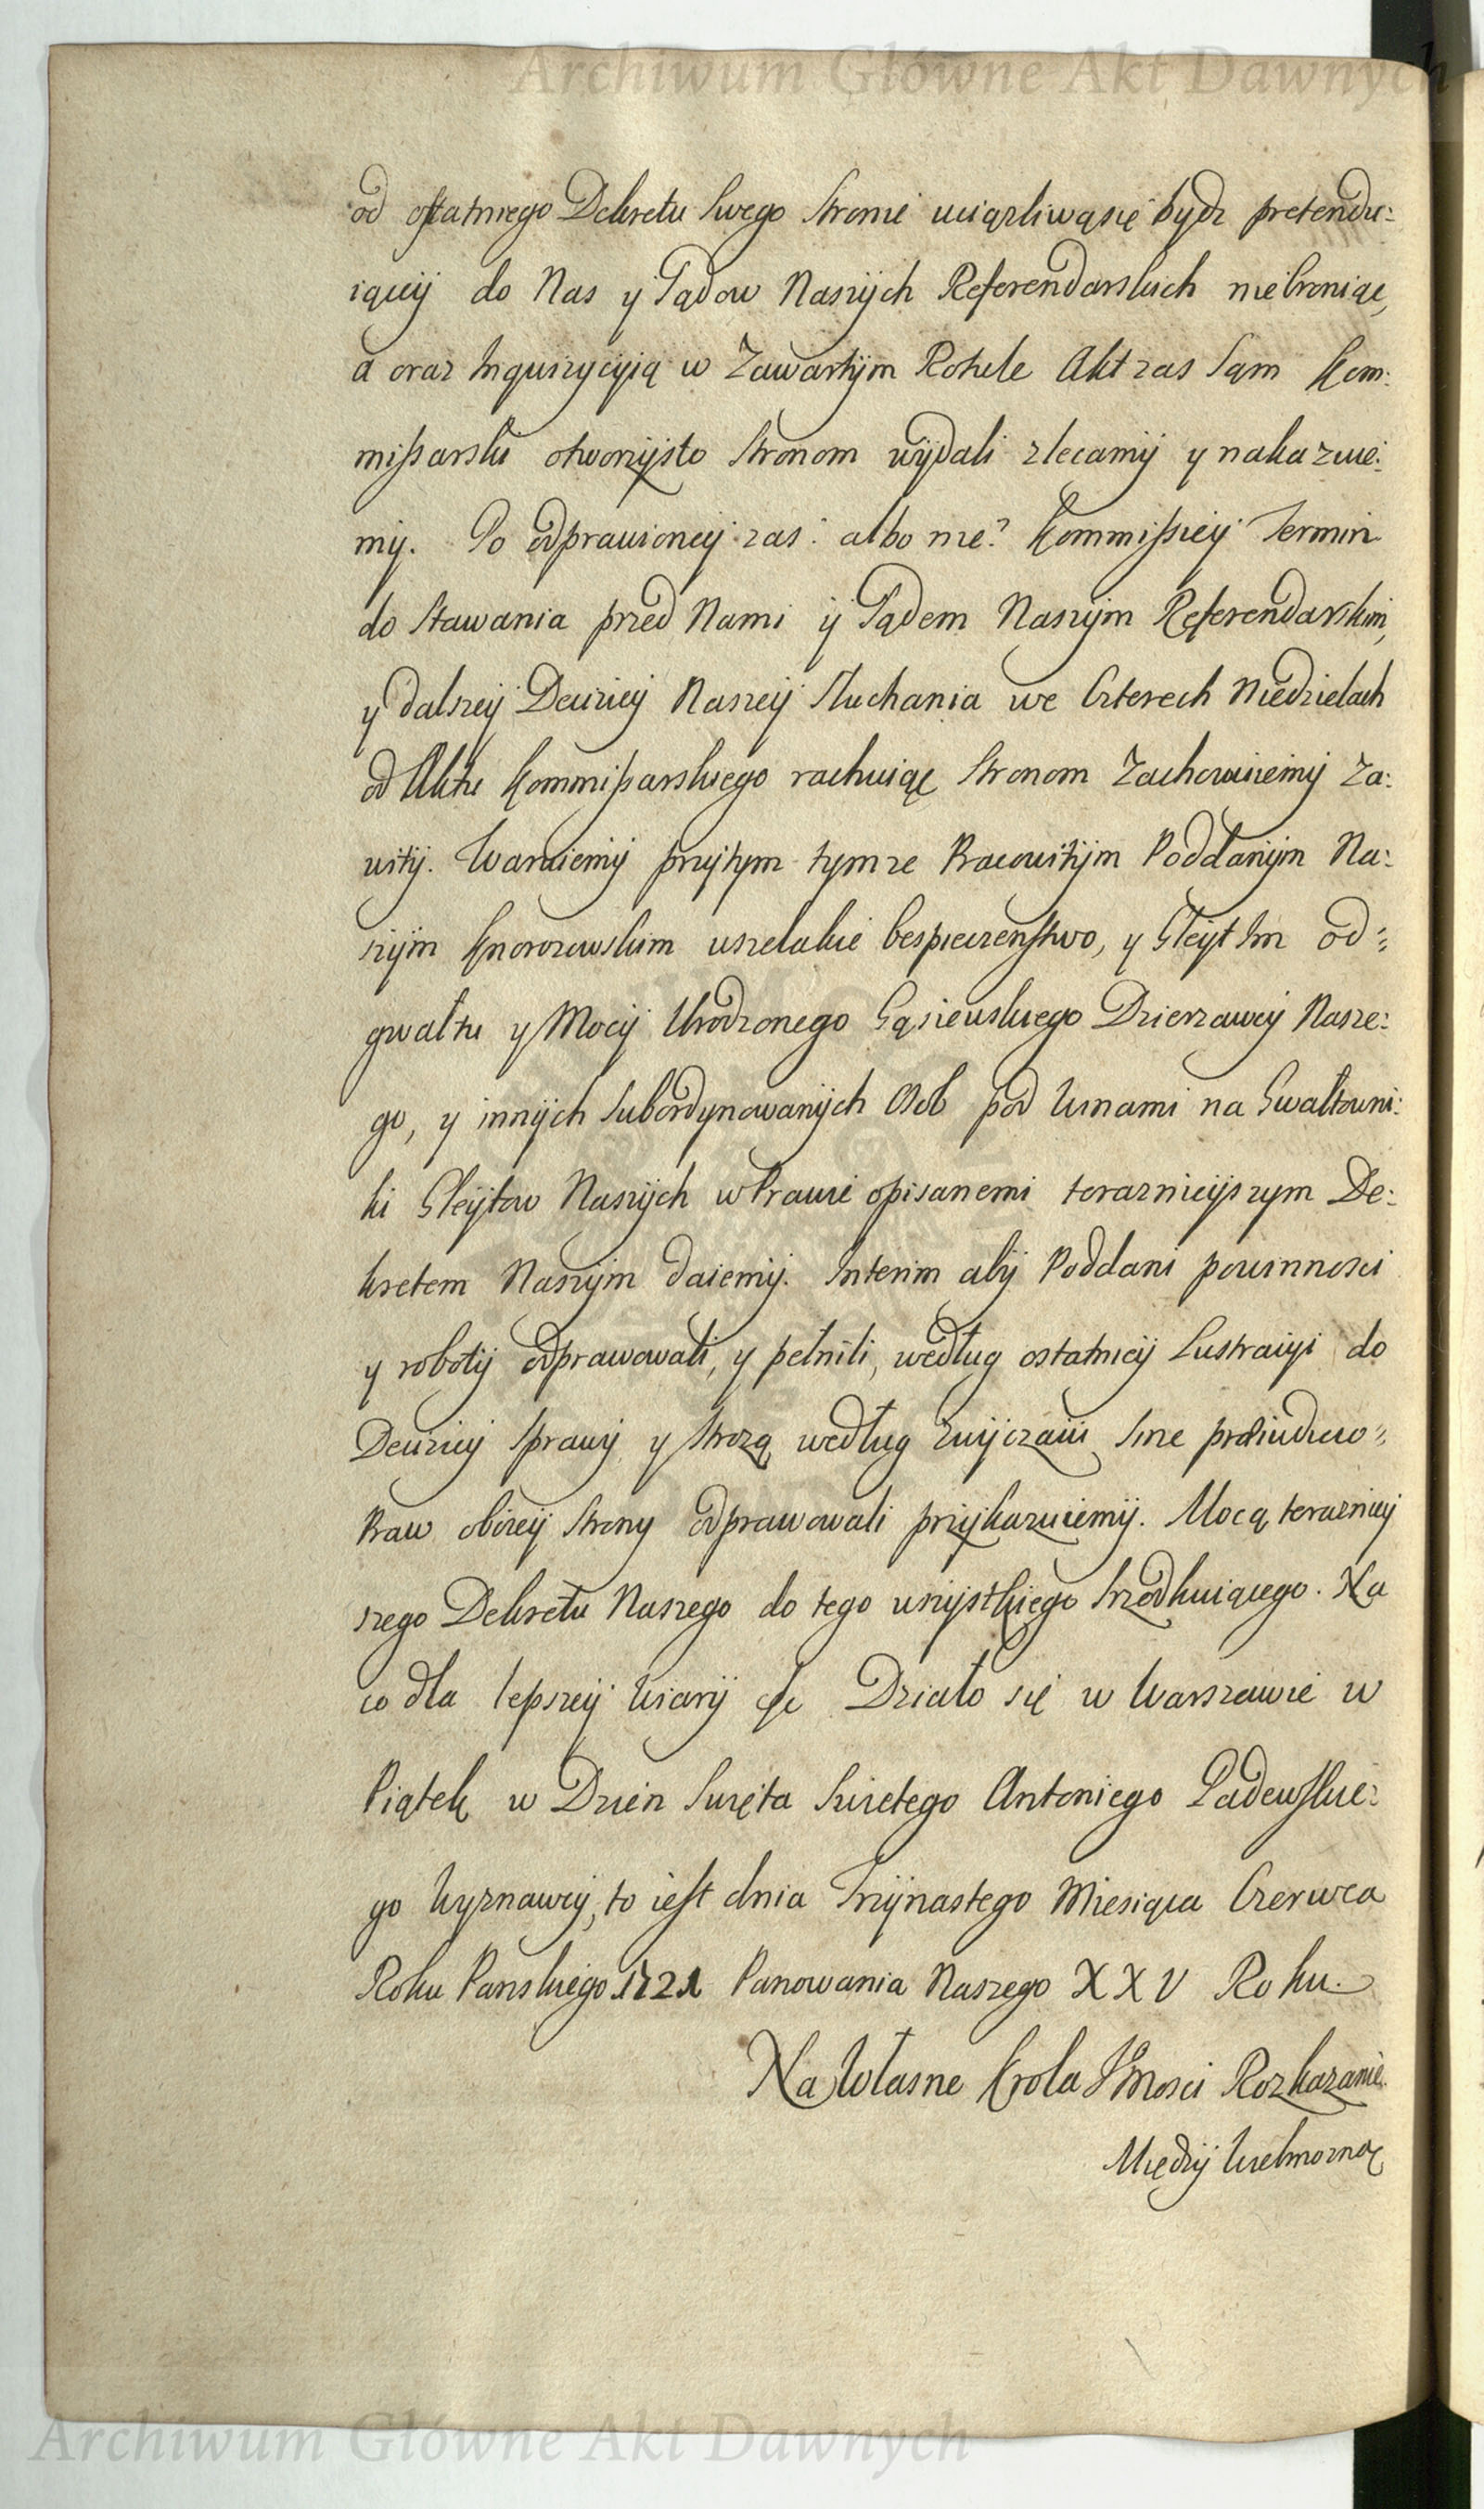 Archiwum Główne Akt Dawnych
od ostatniego Dekretu Swego Stronie uciązliwąsię bydz pretendu:
iącey do Nas y Sądow Naszych Referendarskich niebroniąc,
a oraz Inquizycyią w Zawartym Rotule Akt zas Sąm Kom:
mißarski otworzysto Stronom wydali zlecamy y nakazuie:
my. Po odprawioney zas: albo nie? Kommißiey Termin
do Stawania przed Nami y Sądem Naszym Referendarskim,
y dalszey Decyziey Naszey Słuchania we Czterech Niedzielach
od Aktu Kommißarskiego rachuiąc Stronom Zachowuiemy Za:
wity. Waruiemy przytym tymze Pracowitym Poddanym Na:
szym Knorozowskim wszelakie bespieczenstwo, y Gleyt Im od:
gwałtu y Mocy Urodzonego Gąsiewskiego Dzierzawcy Nasze:
go, y innych Subordynowanych Osob pod Winami na Gwałtowni:
ki Gleytow Naszych w Prawie opisanemi teraznieyszym De:
kretem Naszym daiemy. Interim aby Poddani powinnosci
y roboty odprawowali, y pełnili, według ostatniey Lustracyi do
Decyziey Sprawy y Strozą według Zwyczaiu Sine præiudicio
Praw obozey Strony odprawowali przykazuiemy. Mocą terazniey
szego Dekretu Naszego do tego wszystkiego Srzodkuiącego. Na
co dla lepszey Wiary etc Działo się w Warszawie w
Piątek w Dzien Swięta Swietego Antoniego Padewskie:
go Wyznawcy, to iest dnia Trzynastego Miesiąca Czerwca
Roku Panskiego 1721 Panowania Naszego XXV Roku.
Na Własne Krola JMosci Rozkazanie.
Między Wielmozną
Archiwum Główne Akt Dawnych